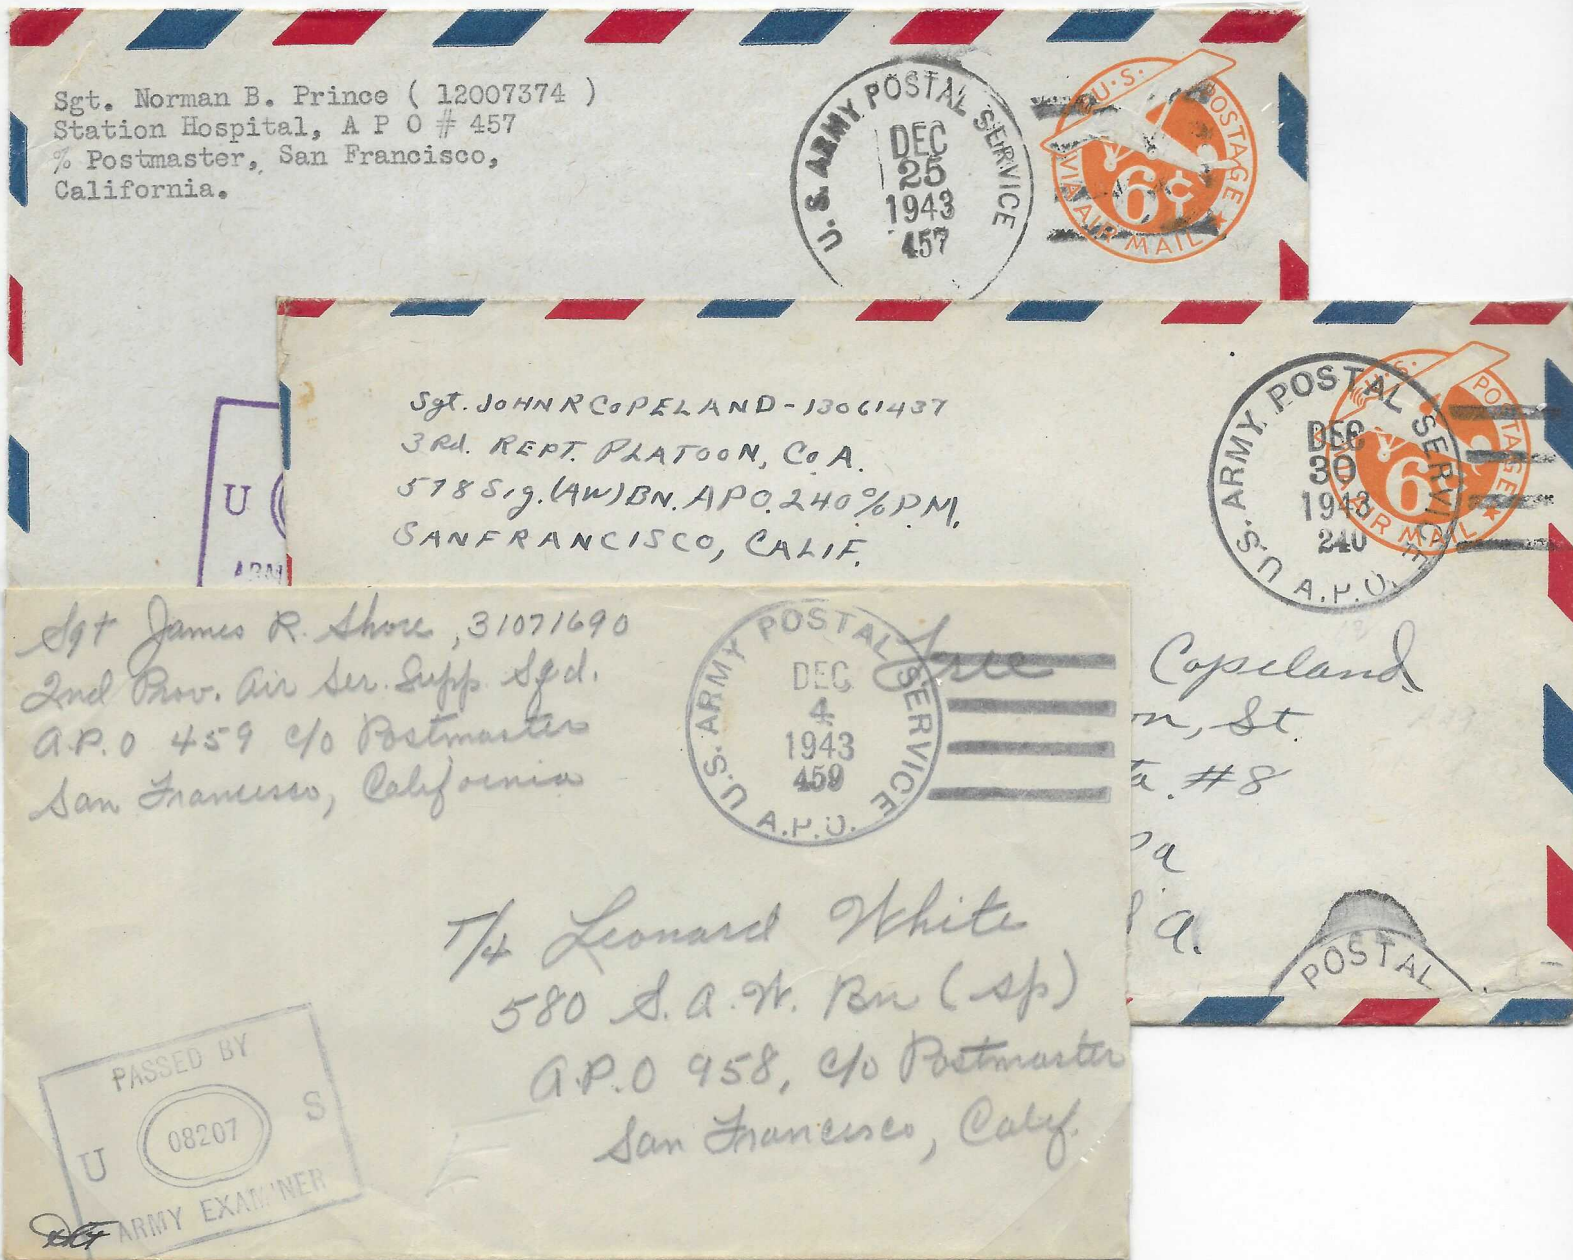 Sgt. Norman B. Prince ( 12007374 )
Station Hospital, A P O # 457
% Postmaster, San Francisco,
California.
U.S. ARMY POSTAL SERVICE
DEC
25
1943
457
U.S. POSTAGE
6¢
VIA AIR MAIL
U
Sgt. JOHN R COPELAND - 13061437
3Rd. REPT. PLATOON, Co A.
578 Sig. (AW) BN. APO. 240 % P.M.
SAN FRANCISCO, CALIF.
U.S. ARMY POSTAL SERVICE
DEC
30
1943
240
A.P.O.
U.S. POSTAGE
6
AIR MAIL
Copeland
on, St.
ta. #8
Pa
A.
POSTAL
Sgt James R. Shore, 31071690
2nd Prov. Air Ser. Supp. Sqd.
A.P.O 459 c/o Postmaster
San Francisco, California
Free
U.S. ARMY POSTAL SERVICE
DEC
4
1943
459
A.P.O.
T/4 Leonard White
580 S.A.W. Bn (Sp)
A.P.O 958, c/o Postmaster
San Francisco, Calif.
PASSED BY
U 08207 S
ARMY EXAMINER